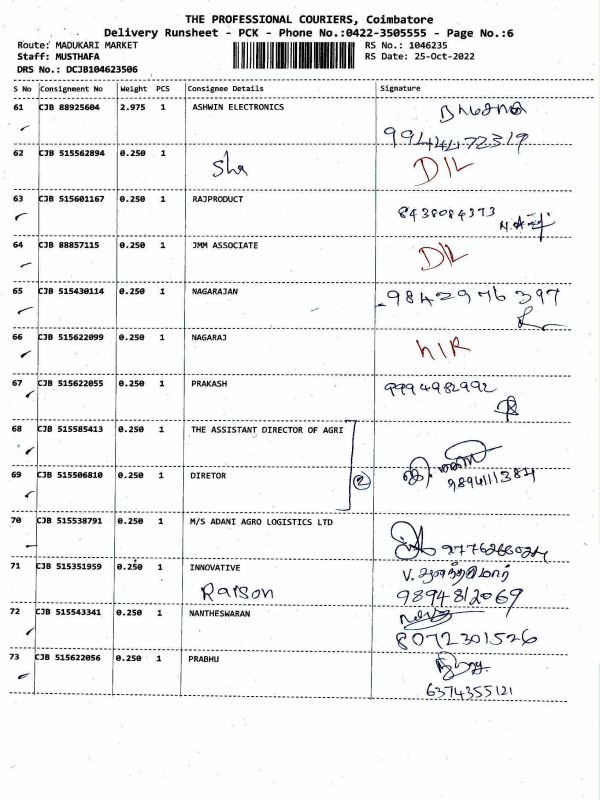 THE PROFESSIONAL COURIERS, Coimbatore
Delivery Runsheet - PCK - Phone No.:0422-3505555 - Page No.:6
Route: MADUKARI MARKET RS No.: 1046235
Staff: MUSTHAFA RS Date: 25-Oct-2022
DRS No.: DCJB104623506
S No Consignment No Weight PCS Consignee Details Signature
61 CJB 88925604 2.975 1 ASHWIN ELECTRONICS
9944472319
62 CJB 515562894 0.250 1 Sha D/L
63 CJB 515601167 0.250 1 RAJPRODUCT 8438084373
64 CJB 88857115 0.250 1 JMM ASSOCIATE D/L
65 CJB 515430114 0.250 1 NAGARAJAN 9842976397
66 CJB 515622099 0.250 1 NAGARAJ
67 CJB 515622055 0.250 1 PRAKASH 9994982992
68 CJB 515585413 0.250 1 THE ASSISTANT DIRECTOR OF AGRI
69 CJB 515506810 0.250 1 DIRETOR 2
70 CJB 515538791 0.250 1 M/S ADANI AGRO LOGISTICS LTD
71 CJB 515351959 0.250 1 INNOVATIVE
Rarson 9894812069
72 CJB 515543341 0.250 1 NANTHESWARAN
8072301526
73 CJB 515622056 0.250 1 PRABHU
6374355121